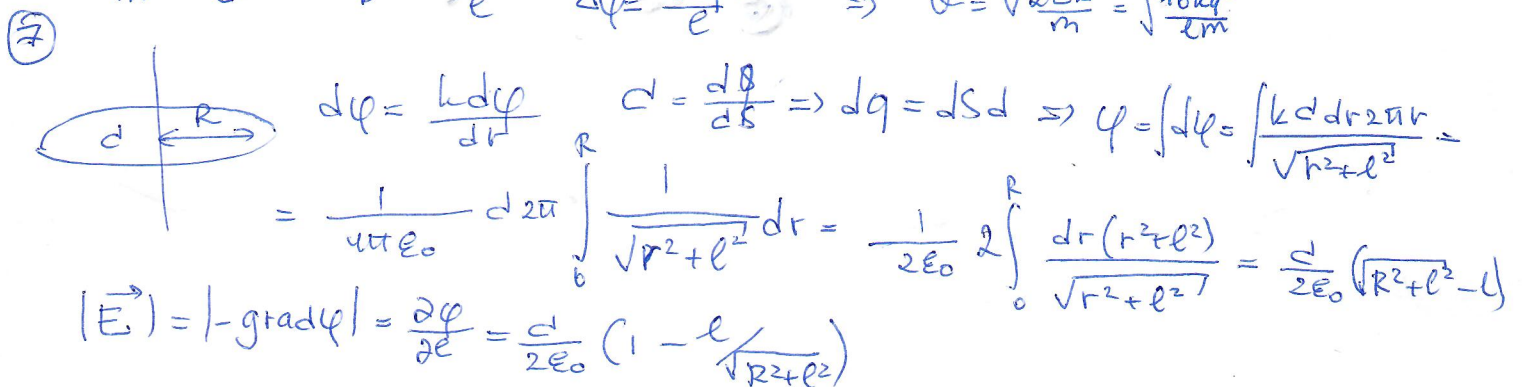 e Δφ = —/e ⇒ = √—/m = √—/em
⑦
d R
dφ = kdφ/dr d = dq/dS => dq = dSd => φ = ∫dφ = ∫ k d dr 2πr / √(r²+l²) =
= 1/(4πε₀) d 2π ∫₀ᴿ 1/√(r²+l²) dr = 1/(2ε₀) 2 ∫₀ᴿ dr(r²+l²)/√(r²+l²) = d/(2ε₀) (√(R²+l²) - l)
|E⃗| = |-gradφ| = ∂φ/∂l = d/(2ε₀) (1 - l/√(R²+l²))